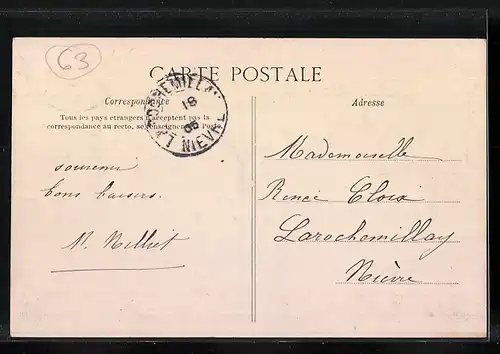 63
CARTE POSTALE
Correspondance
Tous les pays étrangers n'acceptent pas la
correspondance au recto, se renseigner à la Poste.
Adresse
18
NIEVRE
souvenir
bons baisers.
Mademoiselle
Renée Cloix
Larochemillay
Nièvre